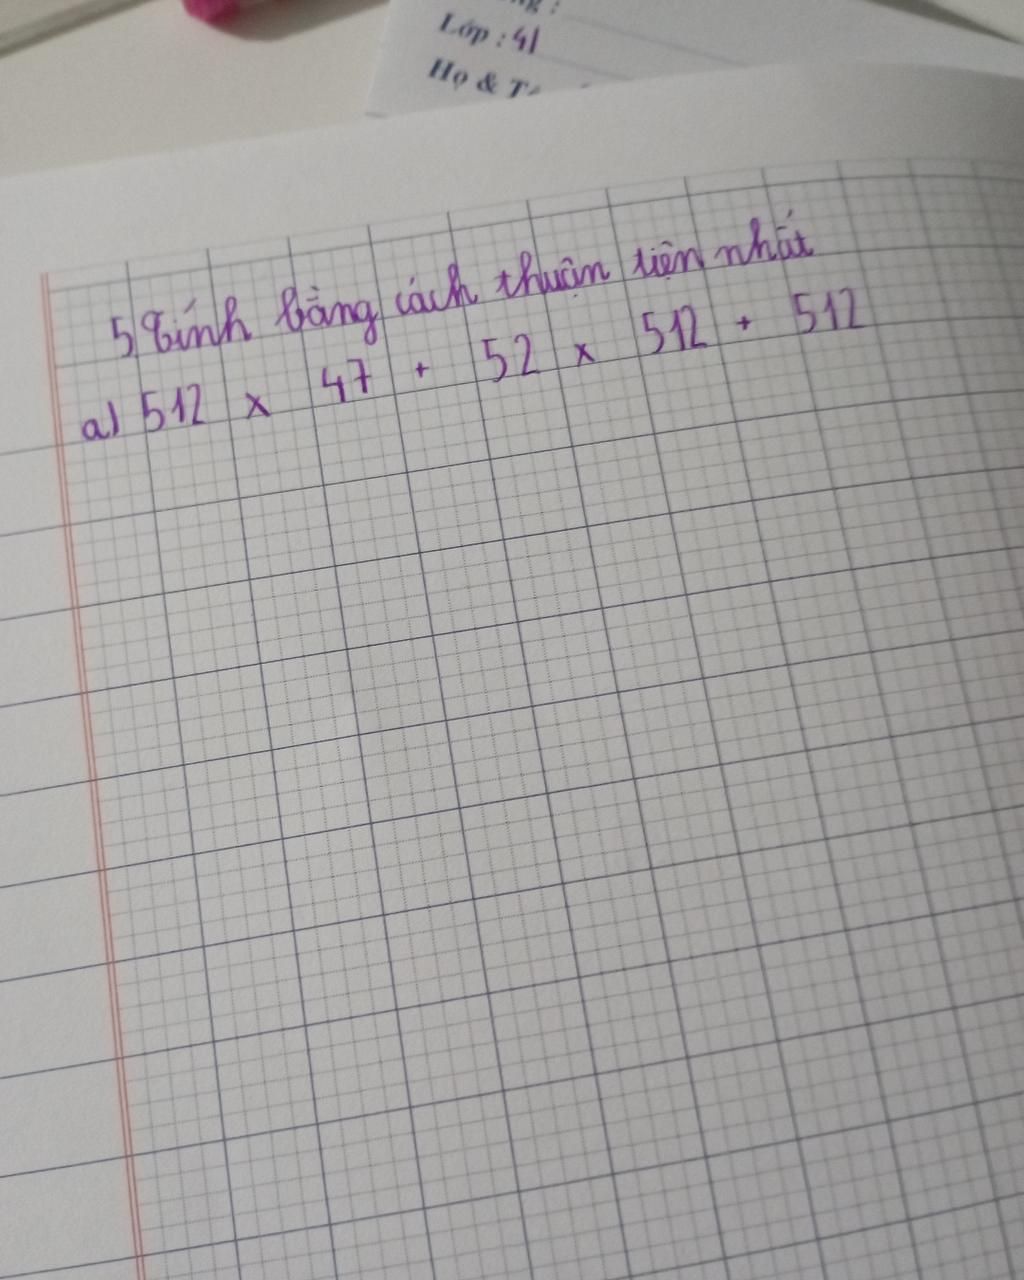 Lớp : 41
Họ &
5, Tính bằng cách thuận tiện nhất
a) 512 x 47 + 52 x 512 + 512